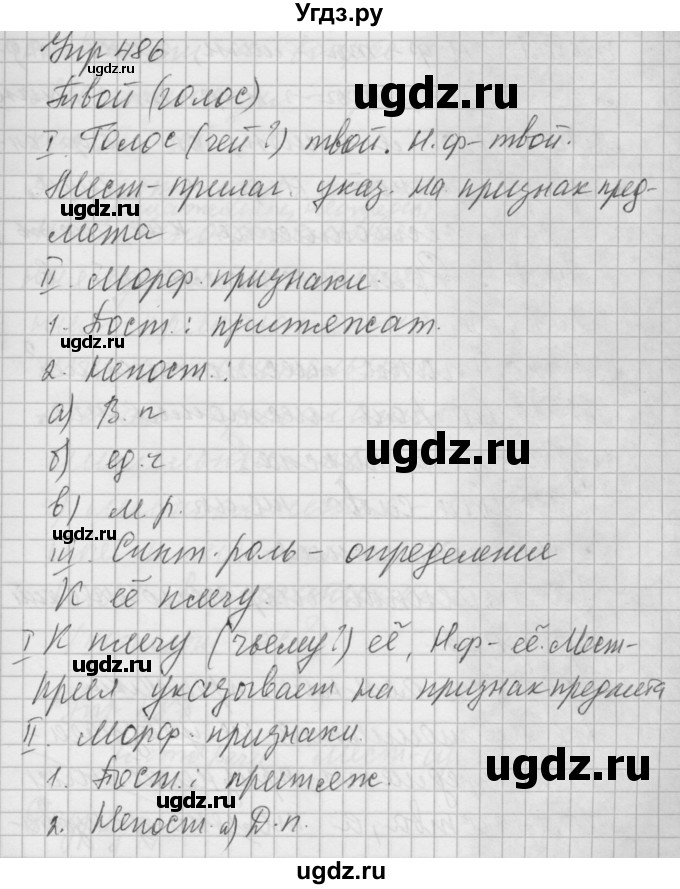 Угдз.ру
Упр 486
Твой (голос)
I. Голос (чей?) твой. Н.ф – твой.
Мест – прилаг. указ. на признак пред-
мета
II. Морф. признаки.
1. Пост.: притяжат.
2. Непост.:
а) В.п
б) ед.ч
в) м.р.
III. Синт. роль – определение
К её плечу.
I К плечу (чьему?) её, Н.ф – её. Мест-
прил указывает на признак предмета
II. Морф. признаки.
1. Пост.: притяж.
2. Непост. а) Д.п.
ugdz.ru
ugdz.ru
ugdz.ru
ugdz.ru
ugdz.ru
ugdz.ru
ugdz.ru
ugdz.ru
ugdz.ru
ugdz.ru
ugdz.ru
ugdz.ru
ugdz.ru